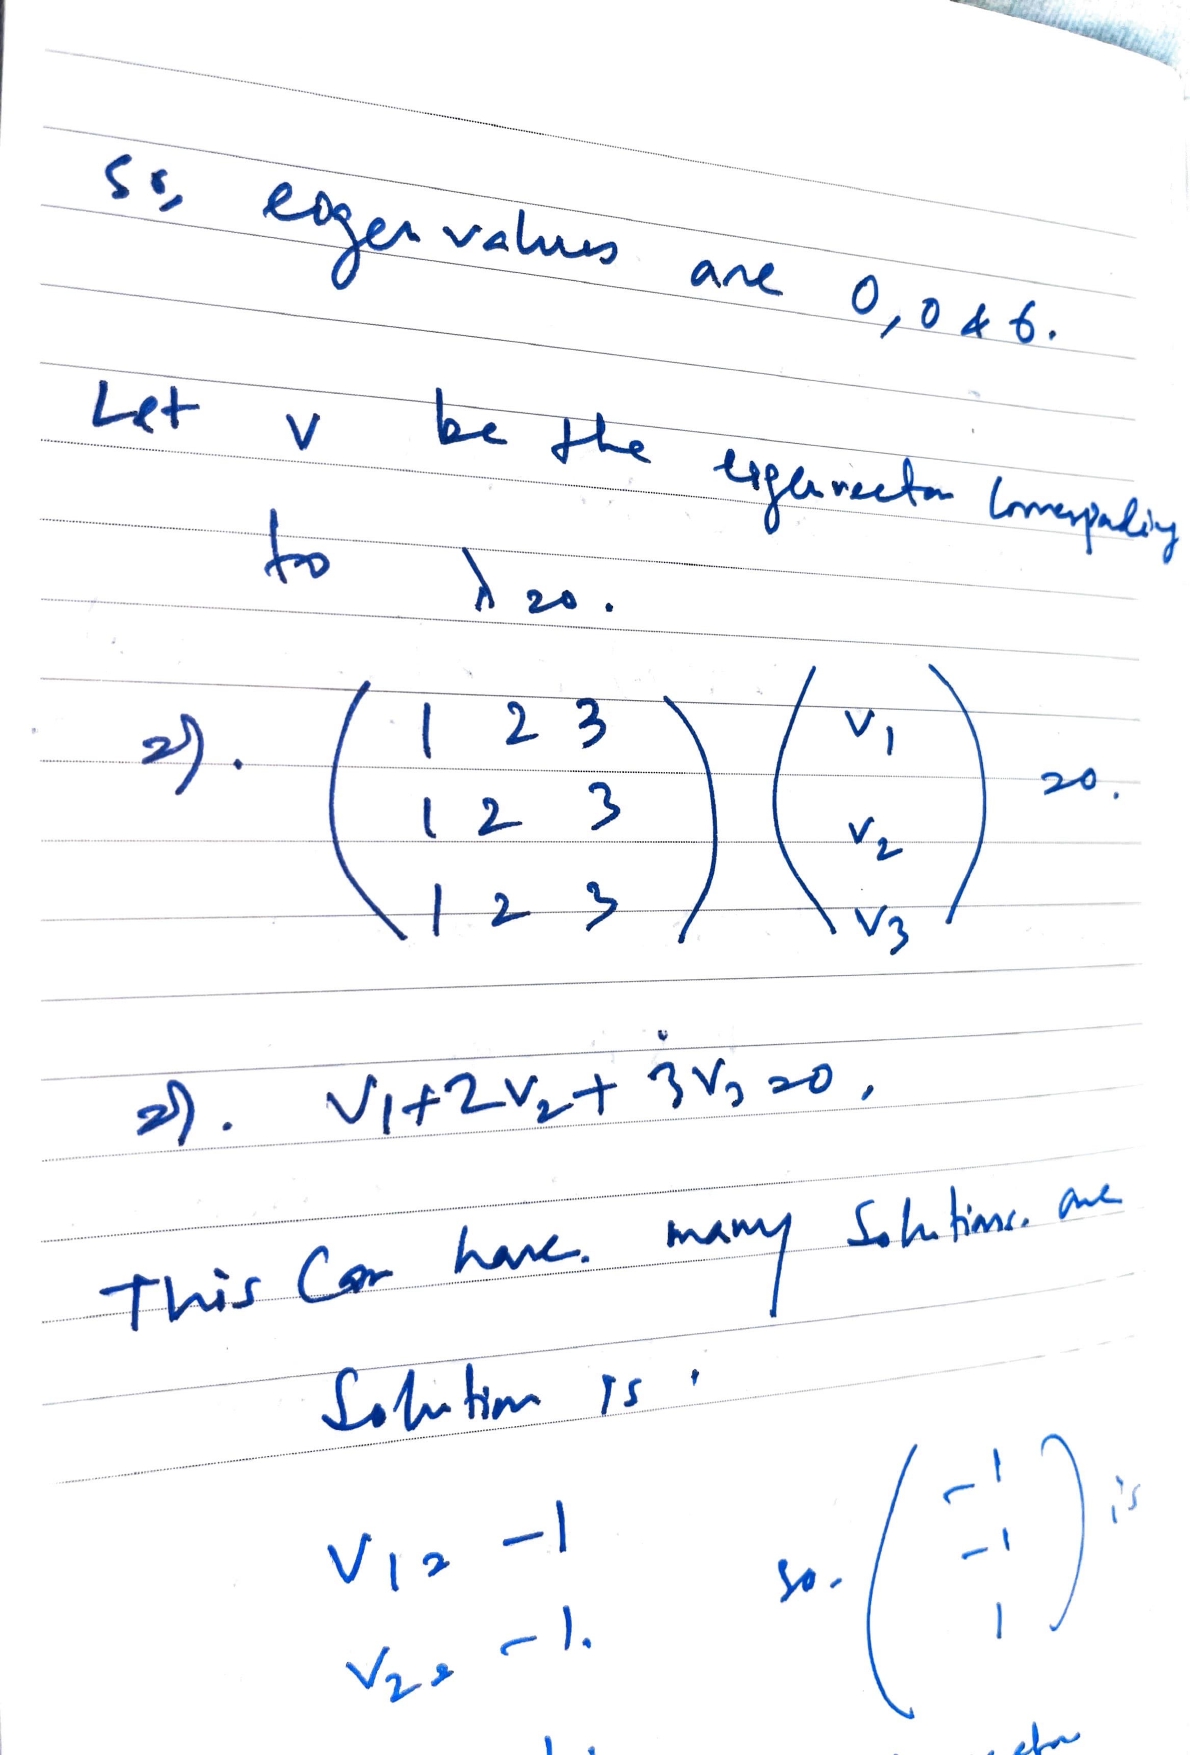 So, eigenvalues are 0, 0 & 6.
Let v be the eigenvector corresponding
to λ = 0.
⇒. ( 1 2 3 ) ( v1 ) = 0.
1 2 3 v2
1 2 3 v3
⇒. v1 + 2v2 + 3v3 = 0,
This can have. many solutions. one
Solution is
v1 = -1 so. ( -1 ) is
v2 = -1. -1
1